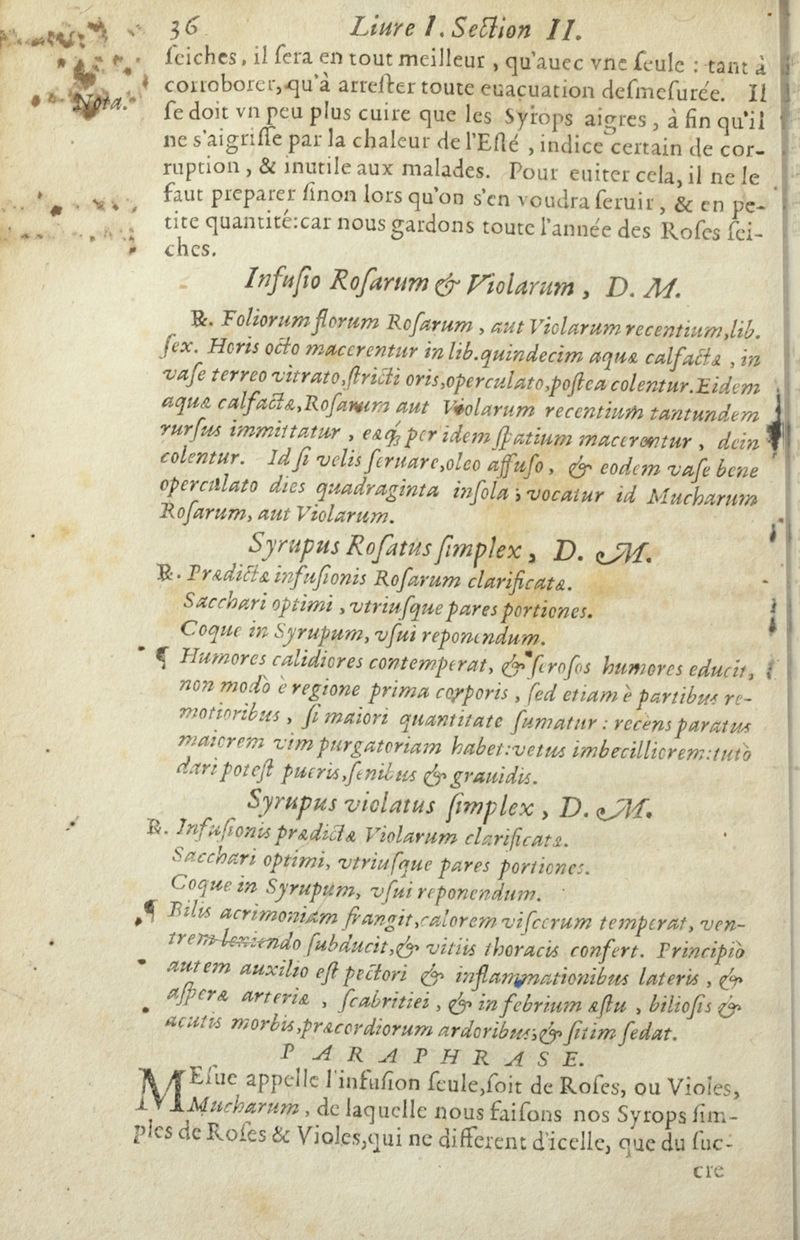 36 Liure I. Section II.
ſeiches, il ſera en tout meilleur, qu'auec vne ſeule : tant à
corroborer, qu'à arreſter toute euacuation deſmeſurée. Il
Nota.
ſe doit vn peu plus cuire que les Syrops aigres, à fin qu'il
ne s'aigriſſe par la chaleur de l'Eſté, indice certain de cor-
ruption, & inutile aux malades. Pour euiter cela, il ne le
faut preparer ſinon lors qu'on s'en voudra ſeruir, & en pe-
tite quantité:car nous gardons toute l'année des Roſes ſei-
ches.
Infuſio Roſarum & Violarum, D. M.
℞. Foliorum florum Roſarum, aut Violarum recentium, lib.
ſex. Horis octo macerentur in lib. quindecim aquæ calfactæ, in
vaſe terreo vitrato, ſtricti oris, operculato, poſtea colentur. Eidem
aquæ calfactæ, Roſarum aut Violarum recentium tantundem
rurſus immittatur, eaq; per idem ſpatium macerentur, dein
colentur. Id ſi velis ſeruare, oleo affuſo, & eodem vaſe bene
operculato dies quadraginta inſola; vocatur id Mucharum
Roſarum, aut Violarum.
Syrupus Roſatus ſimplex, D. M.
℞. Prædictæ infuſionis Roſarum clarificatæ.
Sacchari optimi, vtriuſque pares portiones.
Coque in Syrupum, vſui reponendum.
¶ Humores calidiores contemperat, & ſeroſos humores educit,
non modò è regione prima corporis, ſed etiam è partibus re-
motioribus, ſi maiori quantitate ſumatur : recens paratus
maiorem vim purgatoriam habet: vetus imbecilliorem: tutò
dari poteſt pueris, ſenibus & grauidis.
Syrupus violatus ſimplex, D. M.
℞. Infuſionis prædictæ Violarum clarificatæ.
Sacchari optimi, vtriuſque pares portiones.
Coque in Syrupum, vſui reponendum.
¶ Bilis acrimoniam frangit, calorem viſcerum temperat, ven-
trem leniendo ſubducit, & vitiis thoracis confert. Principiò
autem auxilio eſt pectori & inflammationibus lateris, &
aſperæ arteriæ, ſcabritiei, & in febrium æſtu, bilioſis &
acutis morbis, præcordiorum ardoribus, & ſitim ſedat.
PARAPHRASE.
MEſue appelle l'infuſion ſeule, ſoit de Roſes, ou Violes,
Mucharum, de laquelle nous faiſons nos Syrops ſim-
ples de Roſes & Violes, qui ne different d'icelle, que du ſuc-
cre